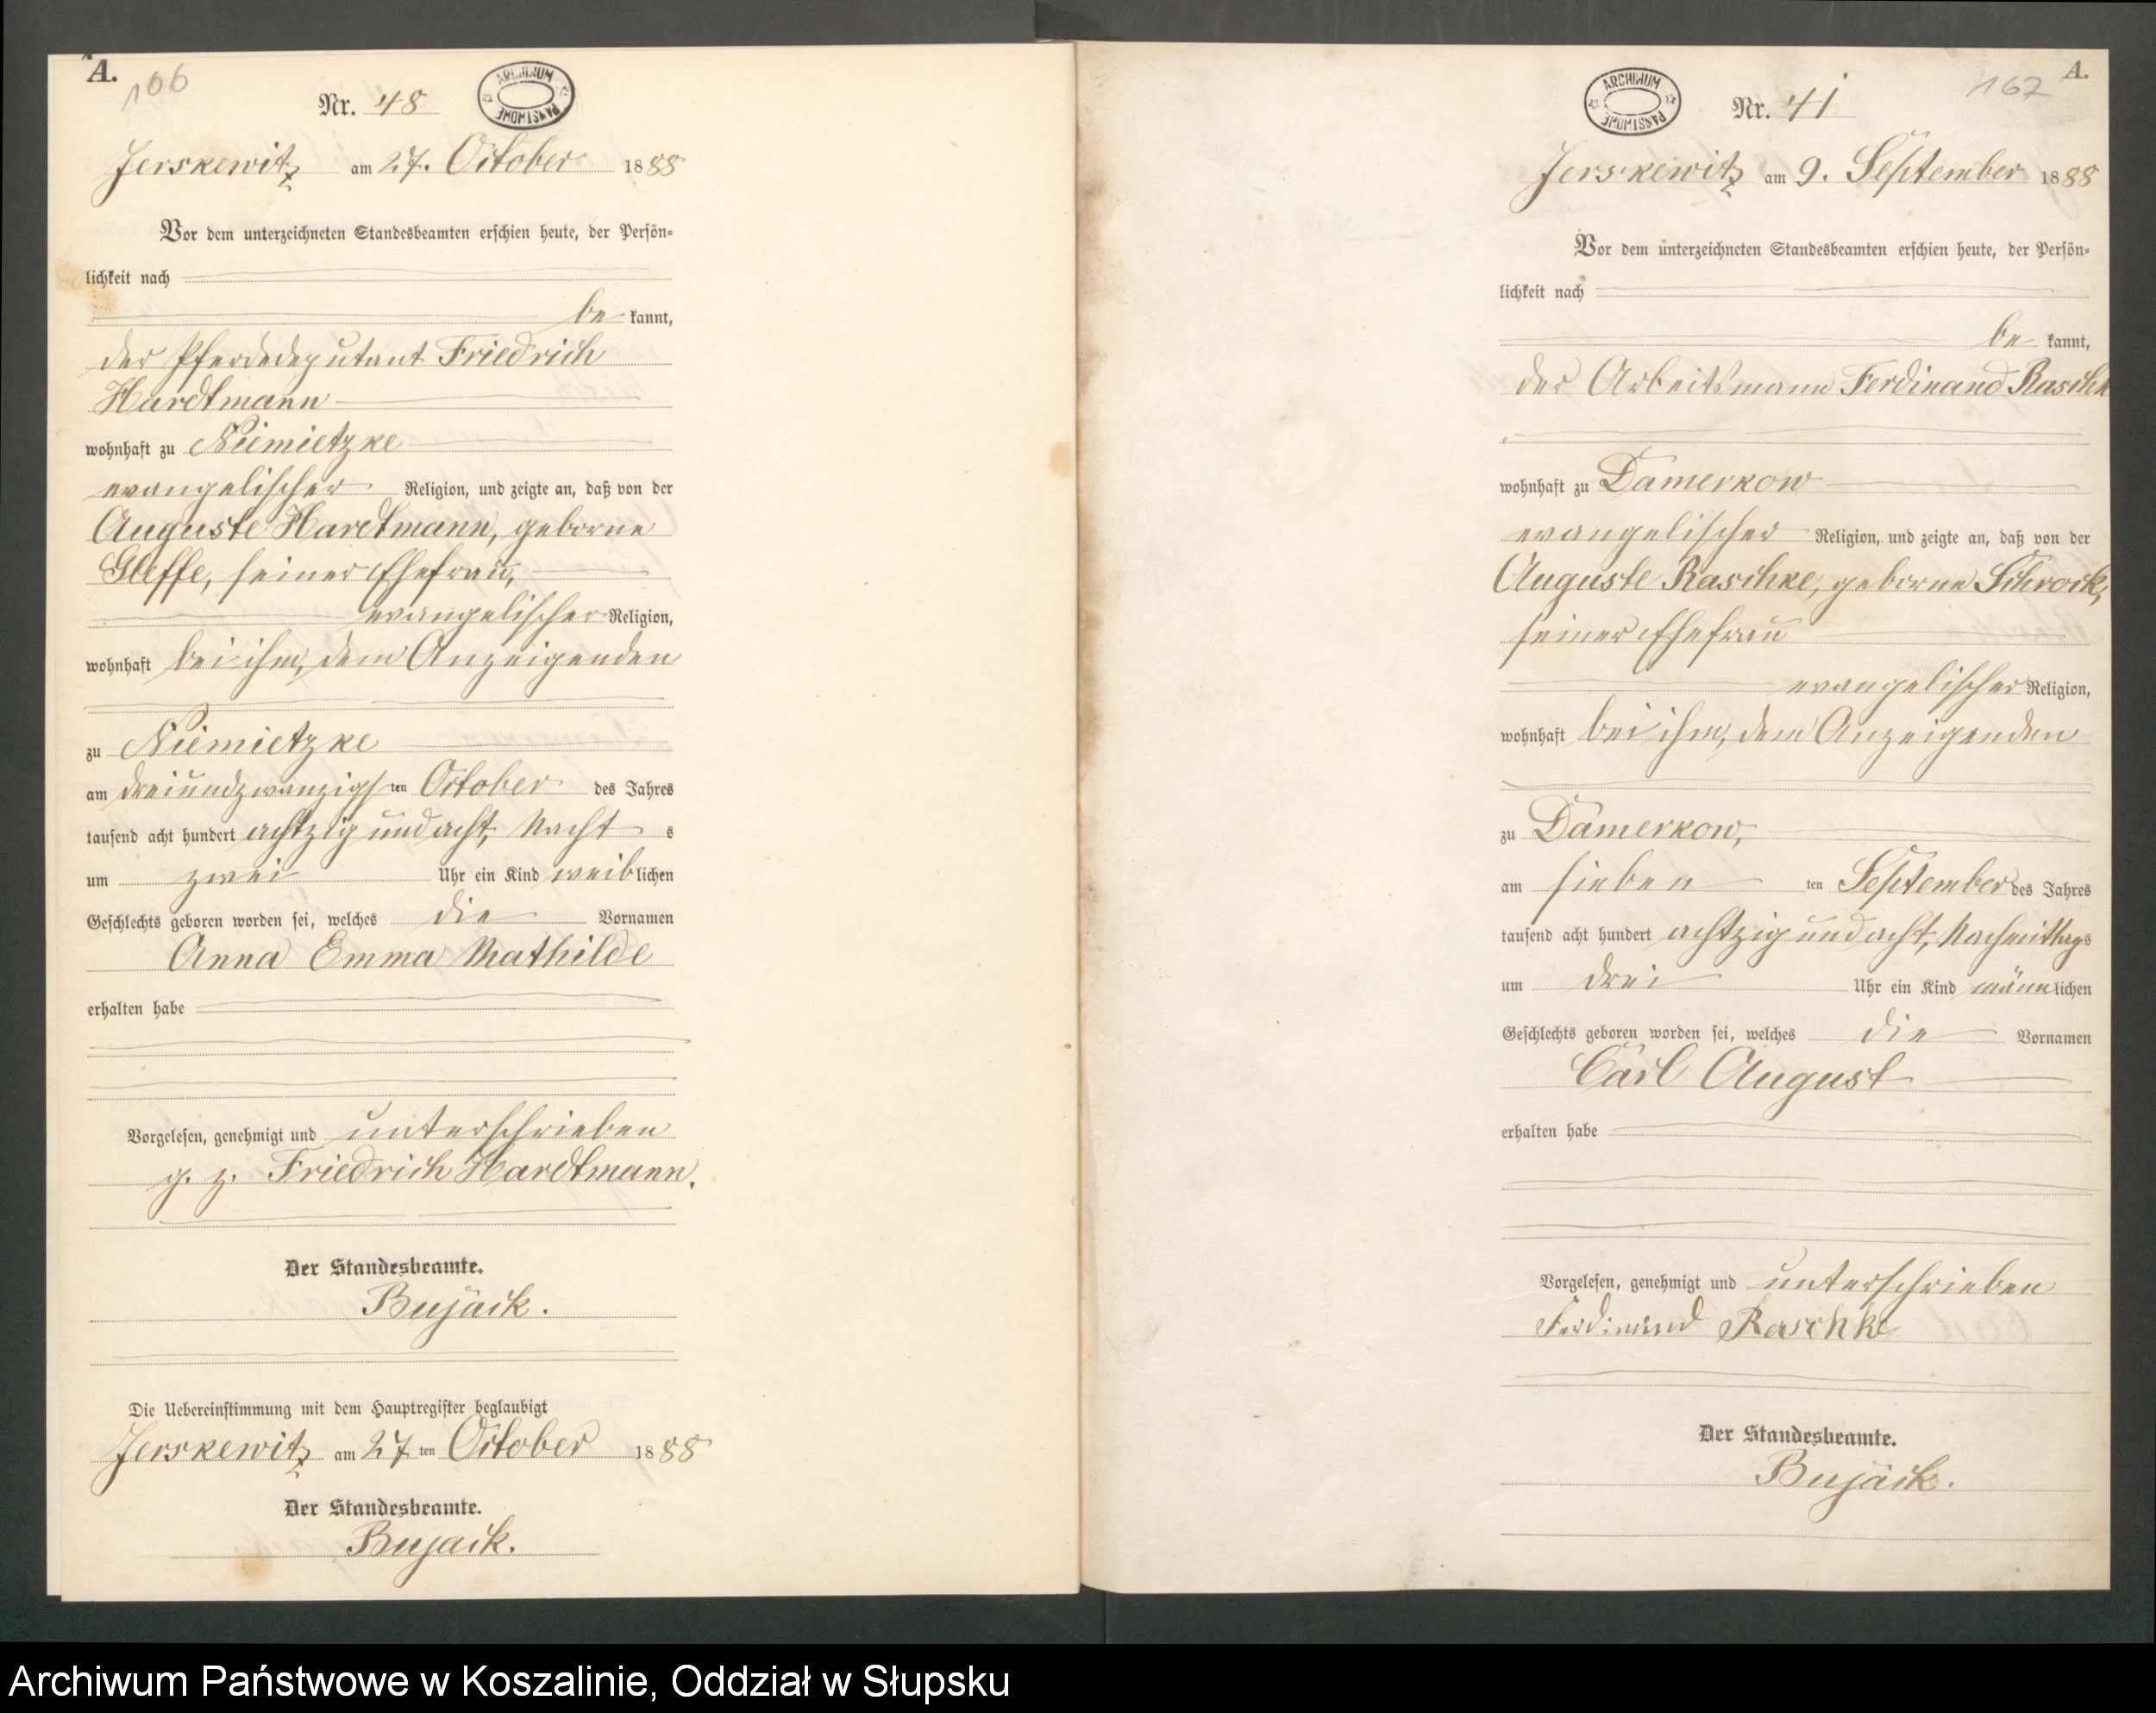 A.
166
Nr. 48
ARCHIWUM PAŃSTWOWE
Jerskewitz am 27. October 1888
Vor dem unterzeichneten Standesbeamten erschien heute, der Persön-
lichkeit nach
be kannt,
der Pferdedeputant Friedrich
Hardtmann
wohnhaft zu Niemietzke
evangelischer Religion, und zeigte an, daß von der
Auguste Hardtmann, geborne
seiner Ehefrau,
evangelischer Religion,
wohnhaft bei ihm, dem Anzeigenden
zu Niemietzke
am dreiundzwanzigsten October des Jahres
tausend acht hundert achtzig und acht, Nachts
um zwei Uhr ein Kind weiblichen
Geschlechts geboren worden sei, welches die Vornamen
Anna Emma Mathilde
erhalten habe
Vorgelesen, genehmigt und unterschrieben
g. z. Friedrich Hardtmann.
Der Standesbeamte.
Bujack.
Die Uebereinstimmung mit dem Hauptregister beglaubigt
Jerskewitz am 27ten October 1888
Der Standesbeamte.
Bujack.
A.
167
ARCHIWUM PAŃSTWOWE
Nr. 41
Jerskewitz am 9. September 1888
Vor dem unterzeichneten Standesbeamten erschien heute, der Persön-
lichkeit nach
be kannt,
der Arbeitsmann Ferdinand Raschk
wohnhaft zu Damerkow
evangelischer Religion, und zeigte an, daß von der
Auguste Raschke, geborne Schrock,
seiner Ehefrau
evangelischer Religion,
wohnhaft bei ihm, dem Anzeigenden
zu Damerkow,
am siebenten September des Jahres
tausend acht hundert achtzig und acht, Nachmittags
um drei Uhr ein Kind männlichen
Geschlechts geboren worden sei, welches die Vornamen
Carl August
erhalten habe
Vorgelesen, genehmigt und unterschrieben
Ferdinand Raschke
Der Standesbeamte.
Bujack.
Archiwum Państwowe w Koszalinie, Oddział w Słupsku